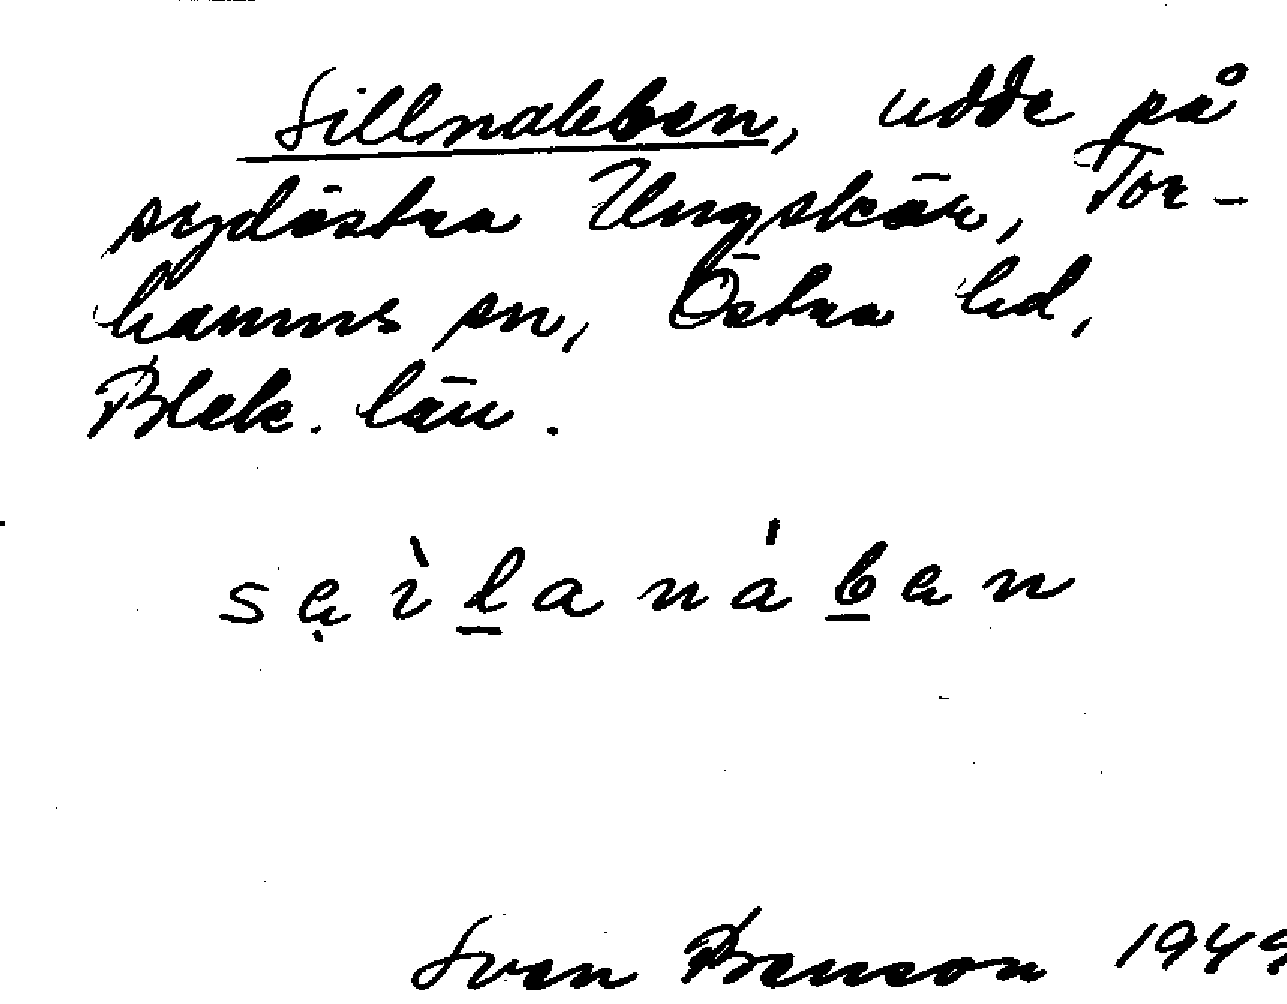 Sillnabben, udde på
sydöstra Ungskär, Tor-
hamns sn, Östra hd,
Blek. län.
Sven Benson 1949